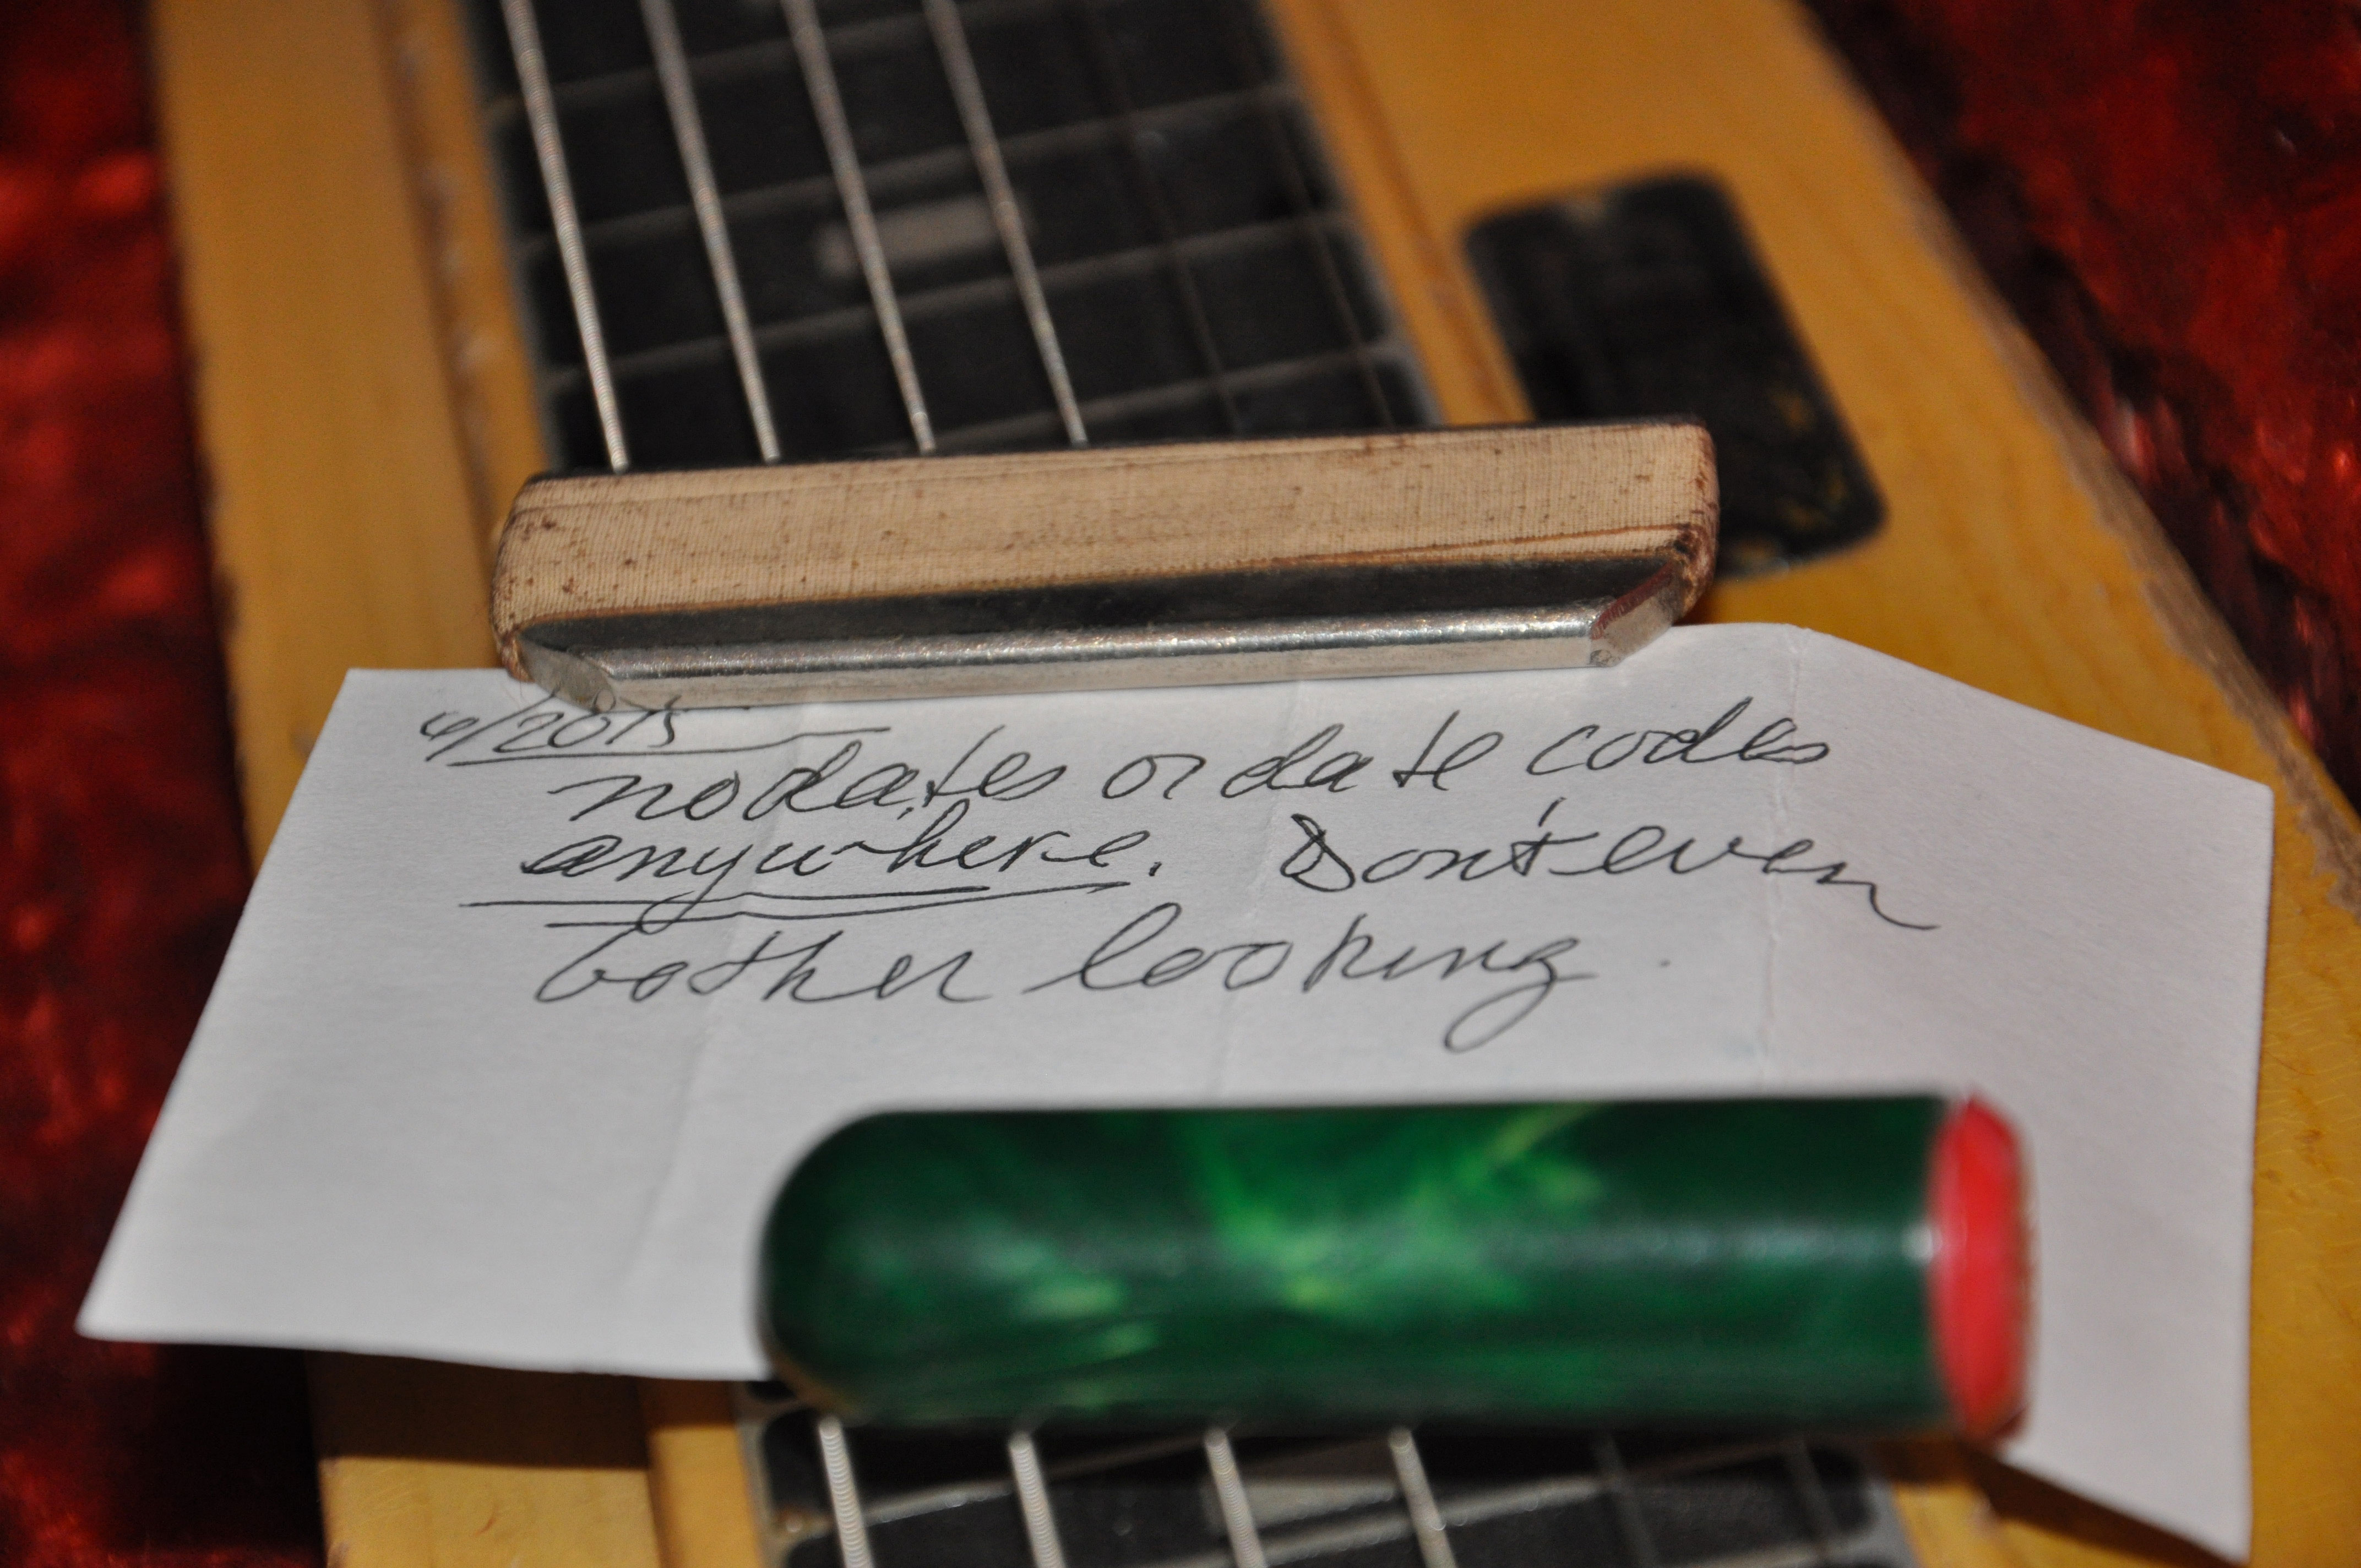 6/2015
no dates or date codes
anywhere. Don't even
bother looking.